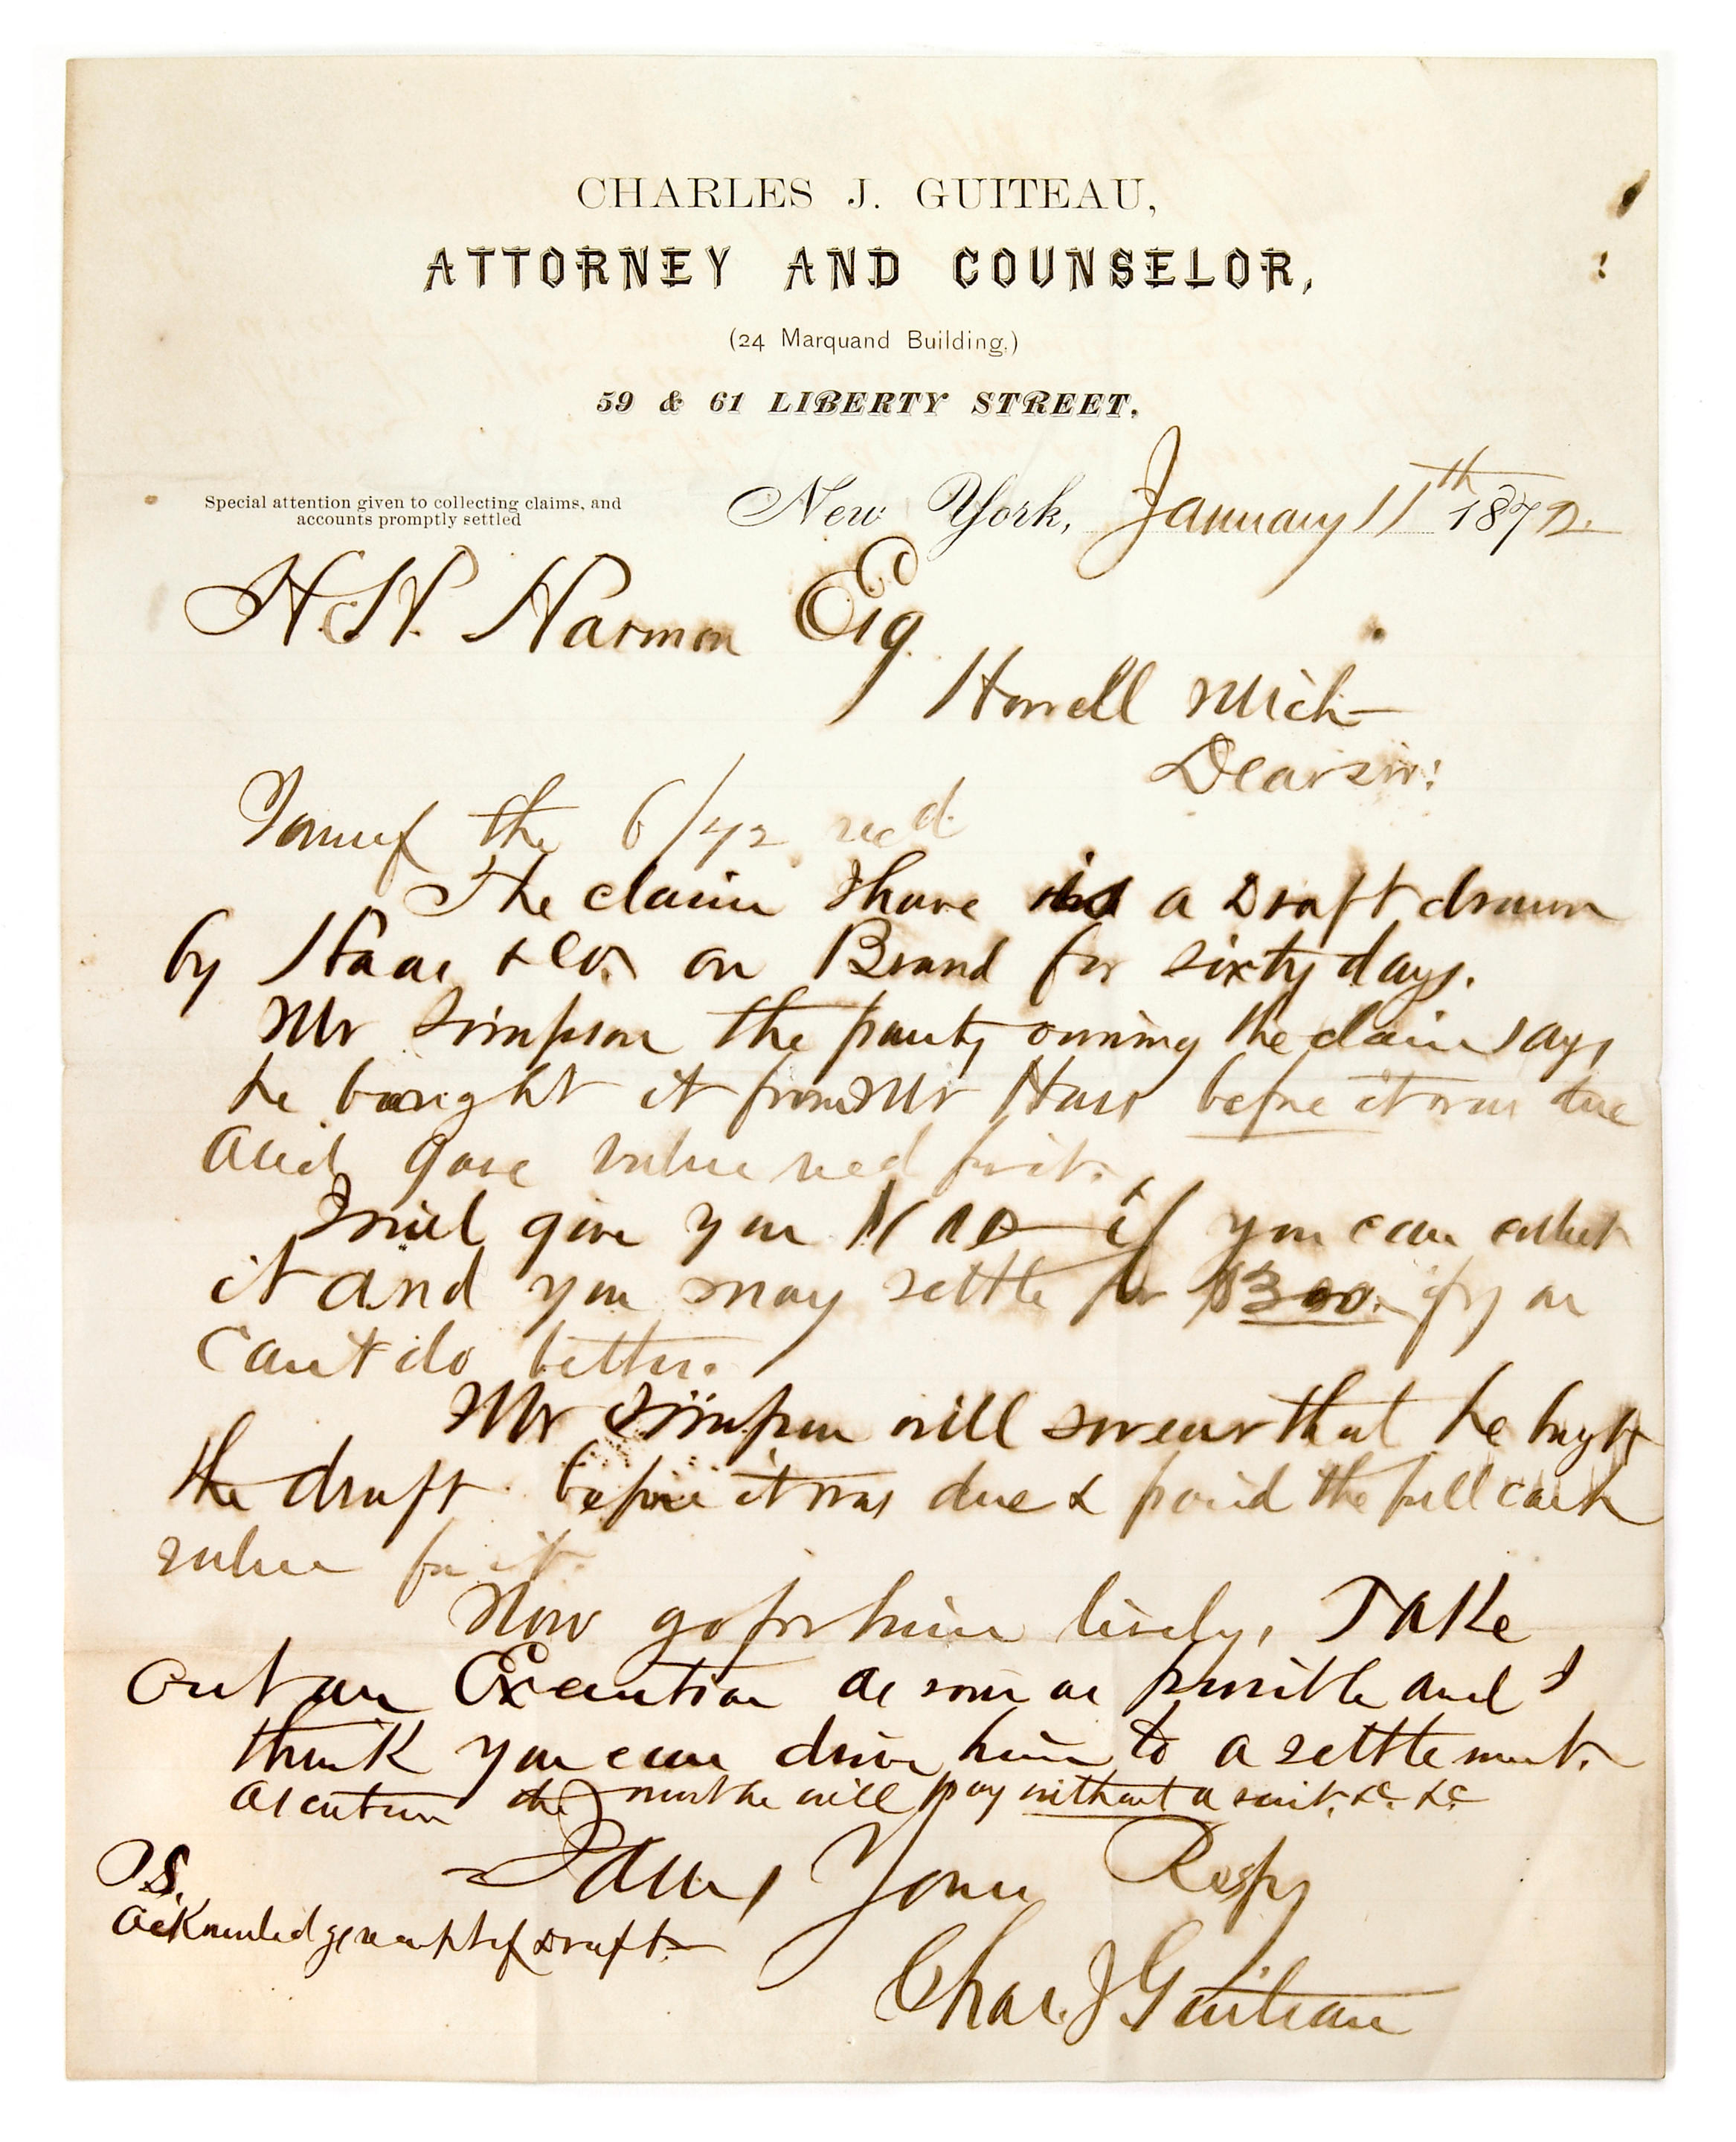 CHARLES J. GUITEAU,
ATTORNEY AND COUNSELOR,
(24 Marquand Building,)
59 & 61 LIBERTY STREET.
Special attention given to collecting claims, and
accounts promptly settled
New York, January 11th 1872.
H. H. Harmon Esq.
Howell Mich—
Dear sir:
Yours of the 6/72 recd.
The claim I have is a Draft drawn
by Haas & Co. on Brand for sixty days.
Mr Simpson the party owning the claim says
he bought it from Mr Haas before it was due
and gave value recd for it.
I will give you if you can collect
it and you may settle for $300. if you
can't do better.
Mr Simpson will swear that he bught
the draft before it was due & paid the full cash
value for it.
Now go for him lively, Take
out an Execution as soon as possible and I
think you can drive him to a settlement.
he will pay without a suit, &c. &c
I am, Yours Respy
P.S.
Acknowledge receipt of Draft.—
Chas. J. Guiteau